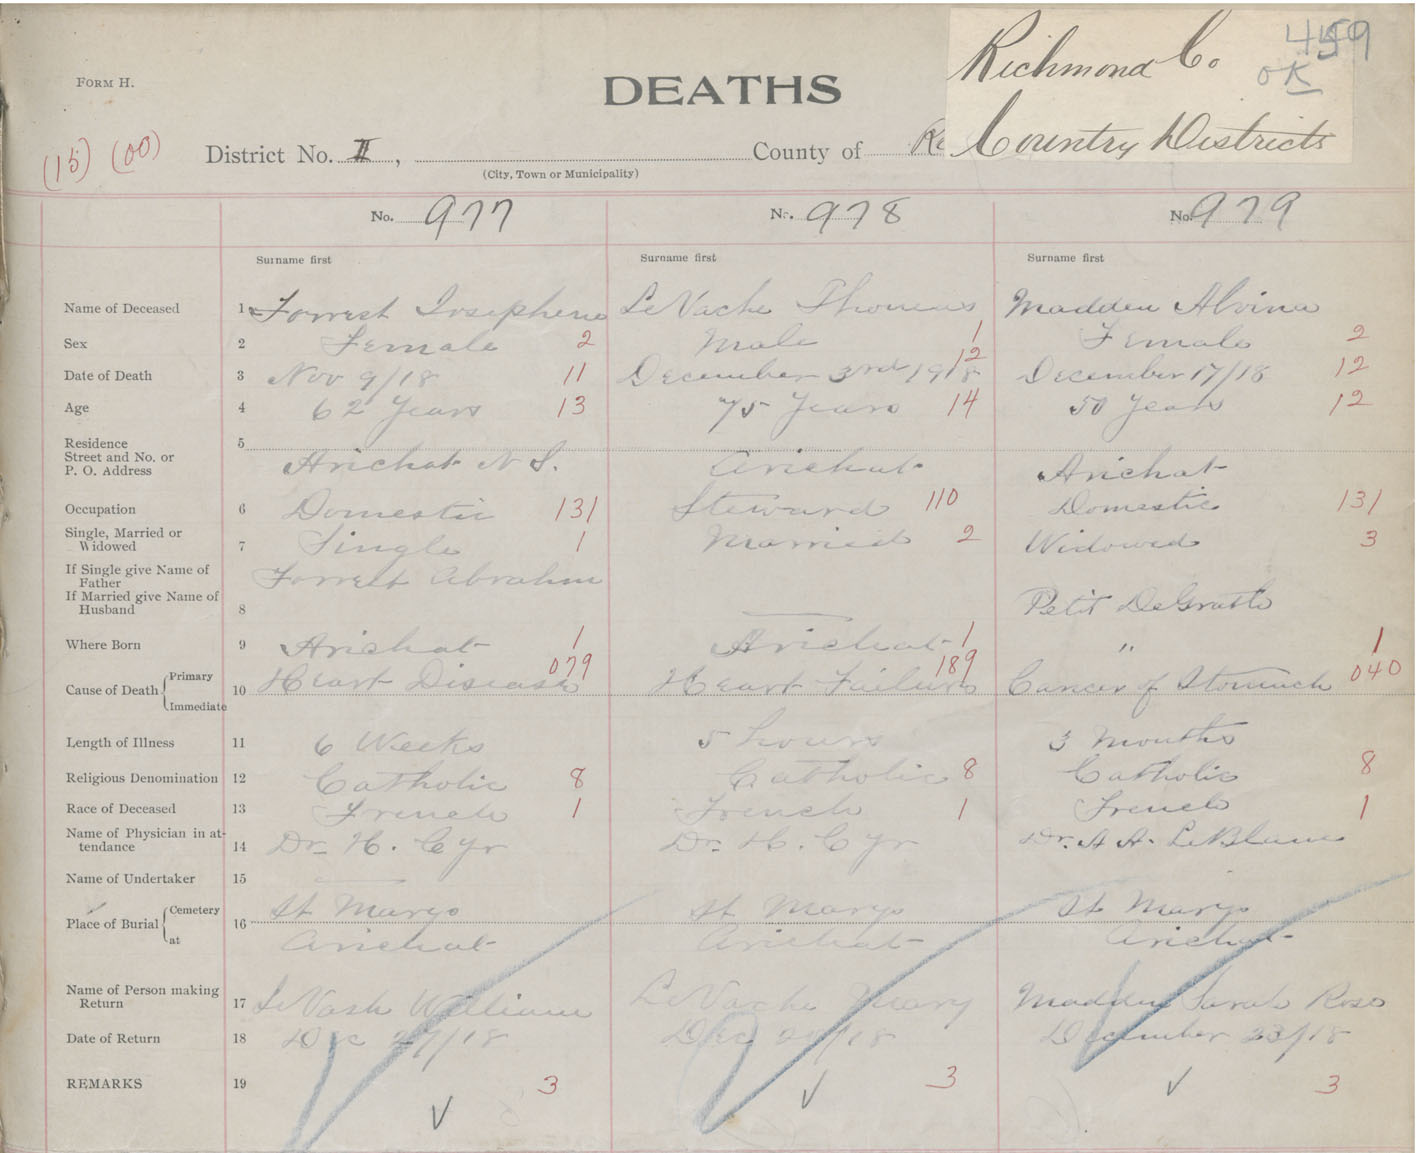 Richmond Co
459
OK
Country Districts
FORM H.
DEATHS
(15) (00)
District No. II, County of
(City, Town or Municipality)
No. 977 No. 978 No. 979
Surname first Surname first Surname first
Name of Deceased 1 Forrest Josephene LeVache Thomas Madden Alvina
Sex 2 Female 2 Male 1 Female 2
Date of Death 3 Nov 9/18 11 December 3rd 1918 12 December 17/18 12
Age 4 62 Years 13 75 Years 14 50 Years 12
Residence 5
Street and No. or
P. O. Address Arichat N S. Arichat Arichat
Occupation 6 Domestic 131 Steward 110 Domestic 131
Single, Married or
Widowed 7 Single 1 Married 2 Widowed 3
If Single give Name of
Father Forrest Abraham
If Married give Name of
Husband 8 Petit DeGratts
Where Born 9 Arichat 1 Arichat 1 " 1
Cause of Death Primary 10 Heart Disease 079 Heart Failure 189 Cancer of Stomach 040
Immediate
Length of Illness 11 6 Weeks 5 hours 3 months
Religious Denomination 12 Catholic 8 Catholic 8 Catholic 8
Race of Deceased 13 French 1 French 1 French 1
Name of Physician in at-
tendance 14 Dr. H. Cyr Dr. H. Cyr Dr. A A. LeBlanc
Name of Undertaker 15
Place of Burial Cemetery 16 St Marys St Marys St Marys
at Arichat Arichat Arichat
Name of Person making
Return 17 LeVash William LeVache Mary Madden Sarah Rose
Date of Return 18 Dec 27/18 Dec 20/18 December 23/18
REMARKS 19 3 3 3